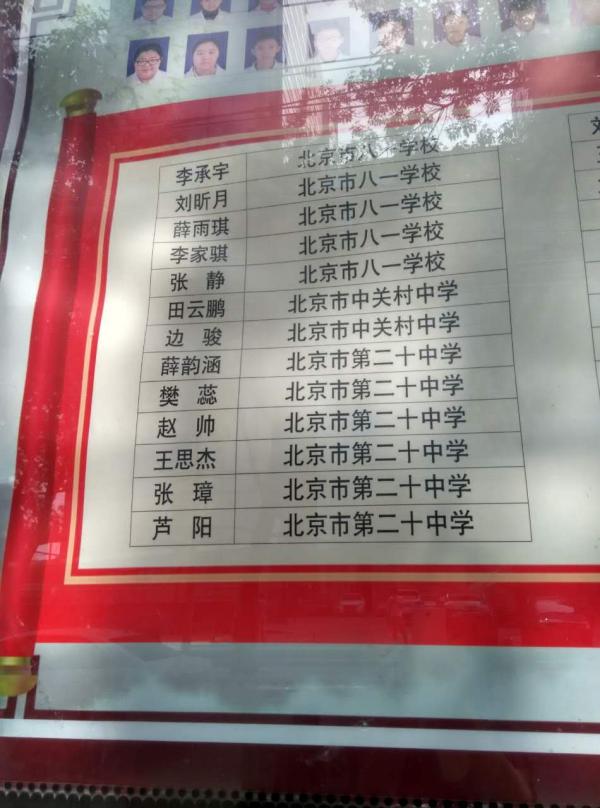 李承宇 北京市八一学校
刘昕月 北京市八一学校
薛雨琪 北京市八一学校
李家骐 北京市八一学校
张 静 北京市八一学校
田云鹏 北京市中关村中学
边 骏 北京市中关村中学
薛韵涵 北京市第二十中学
樊 蕊 北京市第二十中学
赵 帅 北京市第二十中学
王思杰 北京市第二十中学
张 璋 北京市第二十中学
芦 阳 北京市第二十中学